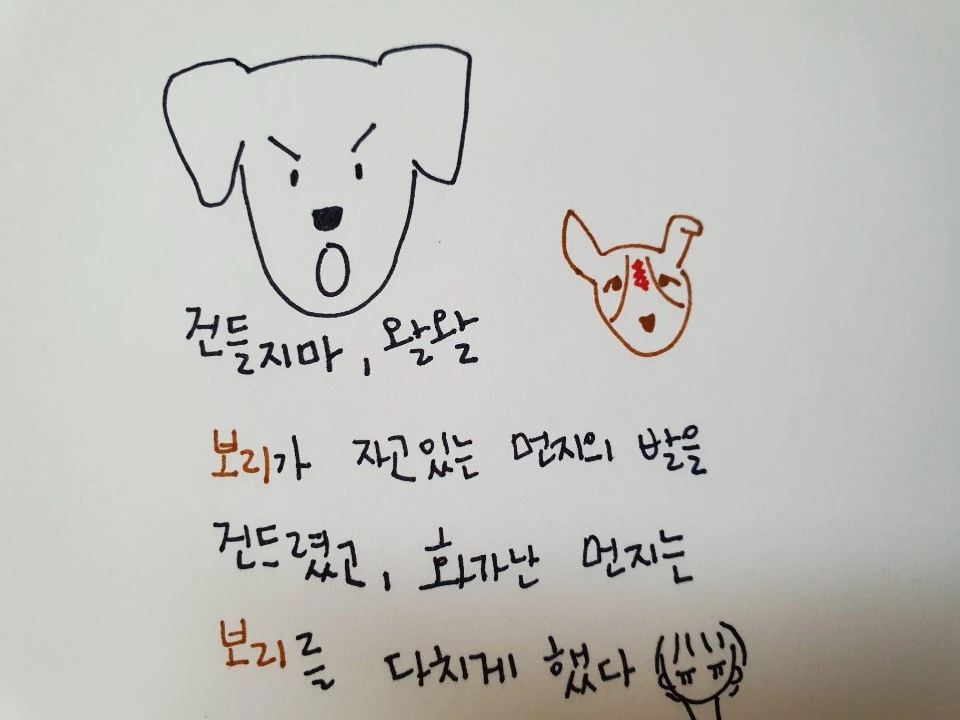 건들지마, 왈왈
보리가 자고있는 먼지의 발을
건드렸고, 화가난 먼지는
보리를 다치게 했다
ㅠㅠ